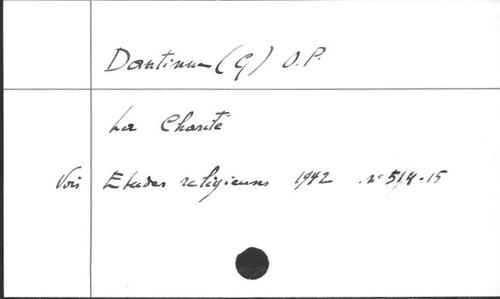 Dantinne (G) O.P.
La Charité
Voir Etudes religieuses 1942 n° 514-15